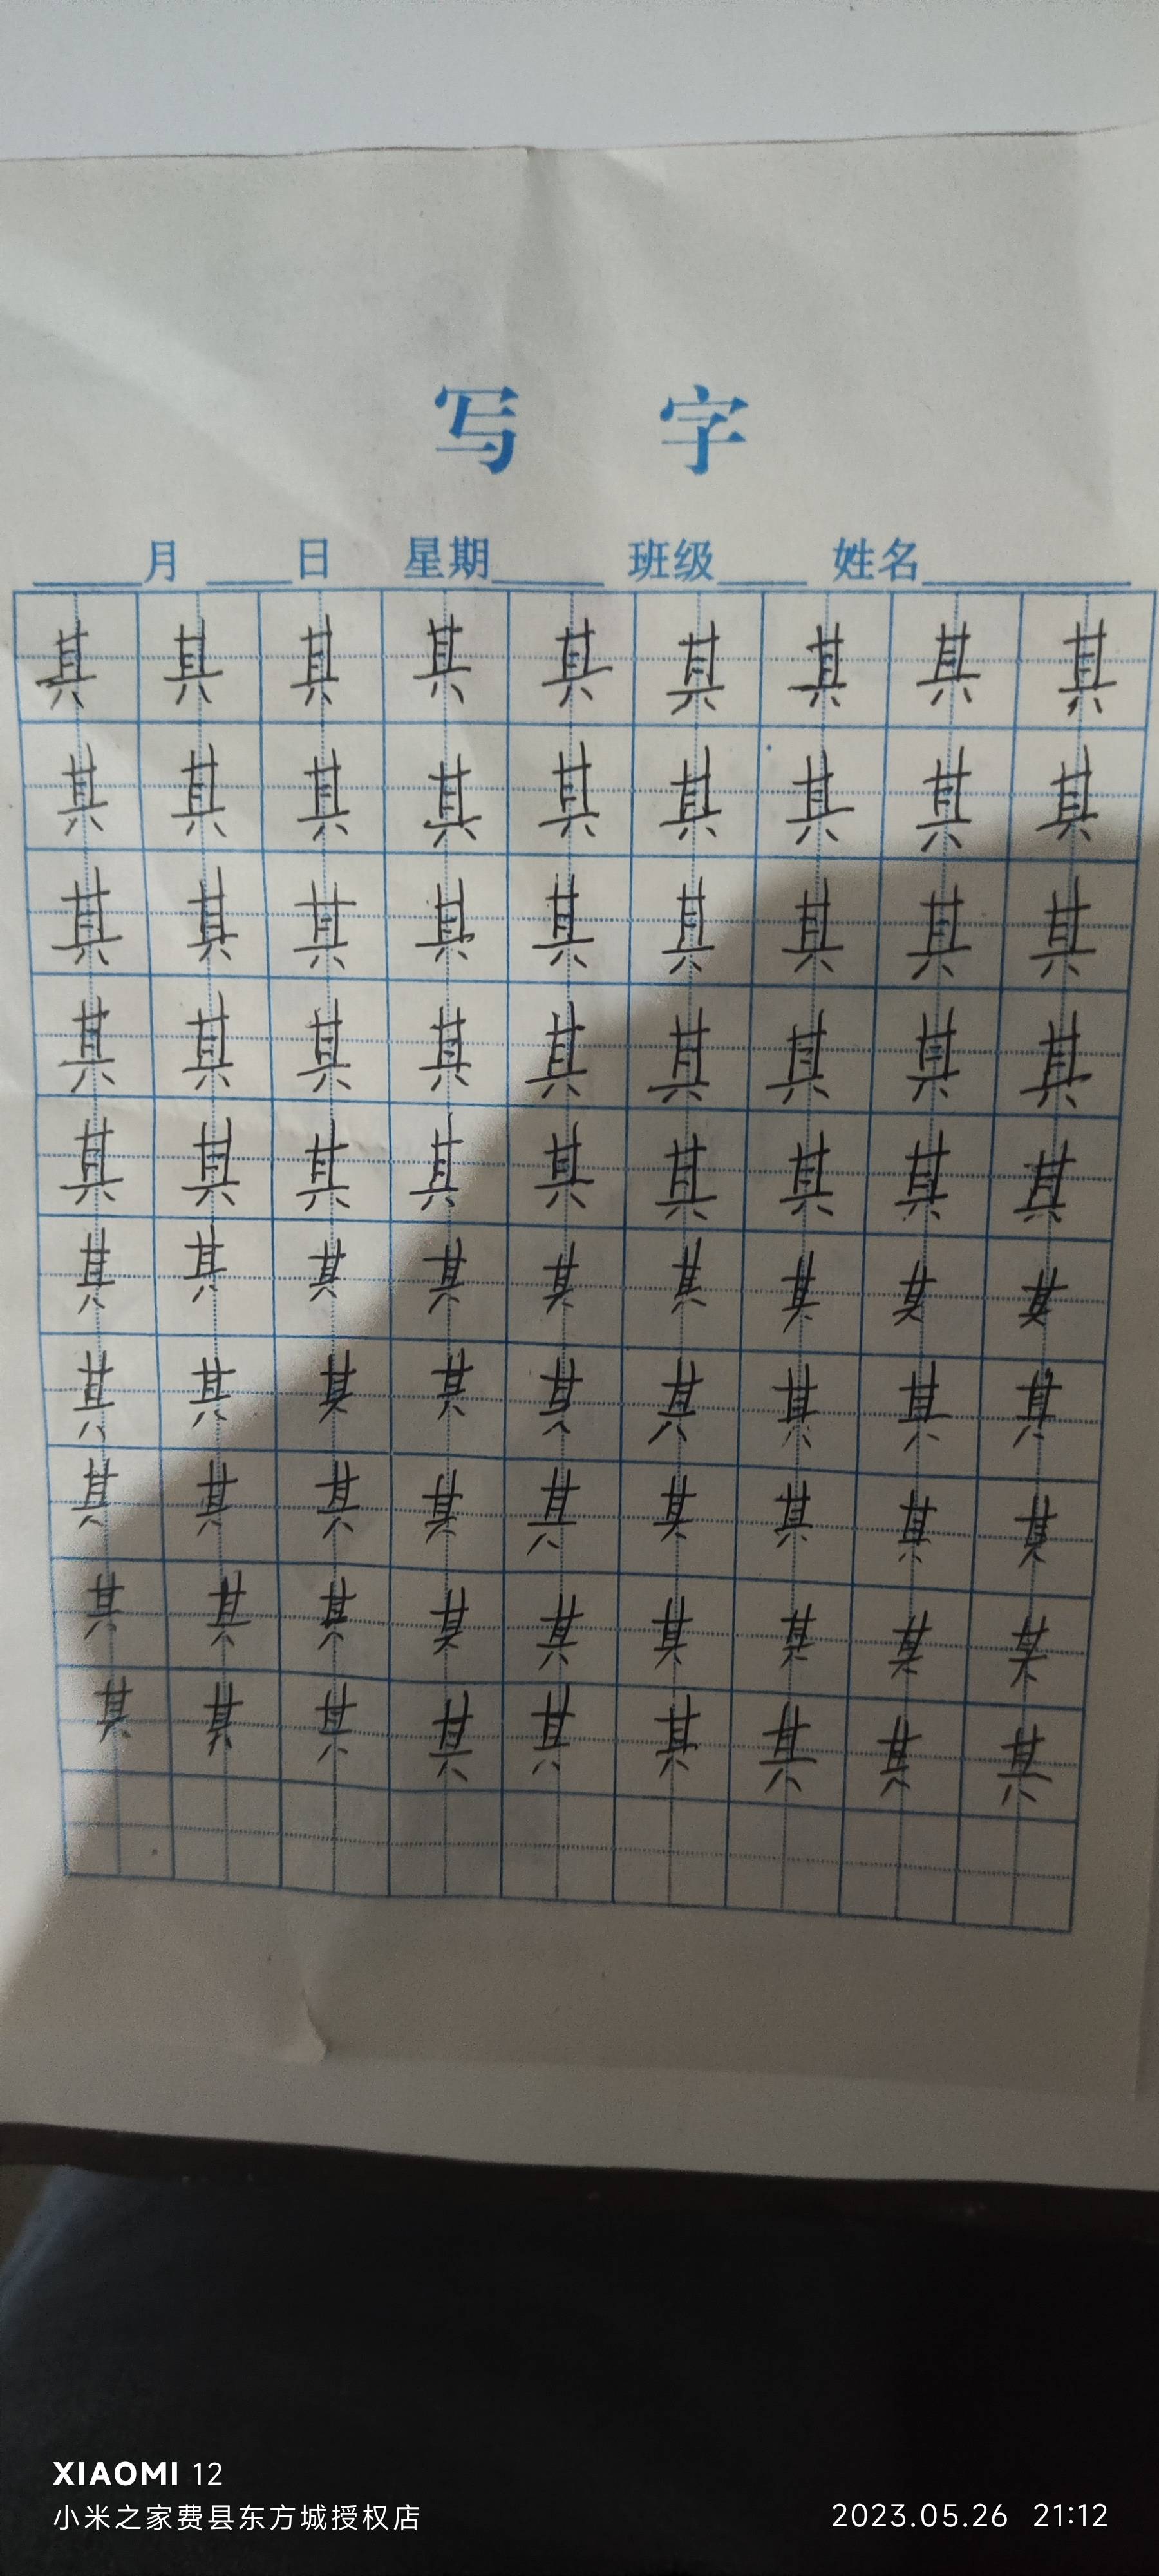 写 字
____月 ____日 星期____ 班级____ 姓名________
其 其 其 其 其 其 其 其 其
其 其 其 其 其 其 其 其 其
其 其 其 其 其 其 其 其 其
其 其 其 其 其 其 其 其 其
其 其 其 其 其 其 其 其 其
其 其 其 其 其 其 其 其 其
其 其 其 其 其 其 其 其 其
其 其 其 其 其 其 其 其 其
其 其 其 其 其 其 其 其 其
其 其 其 其 其 其 其 其 其
XIAOMI 12
小米之家费县东方城授权店 2023.05.26 21:12